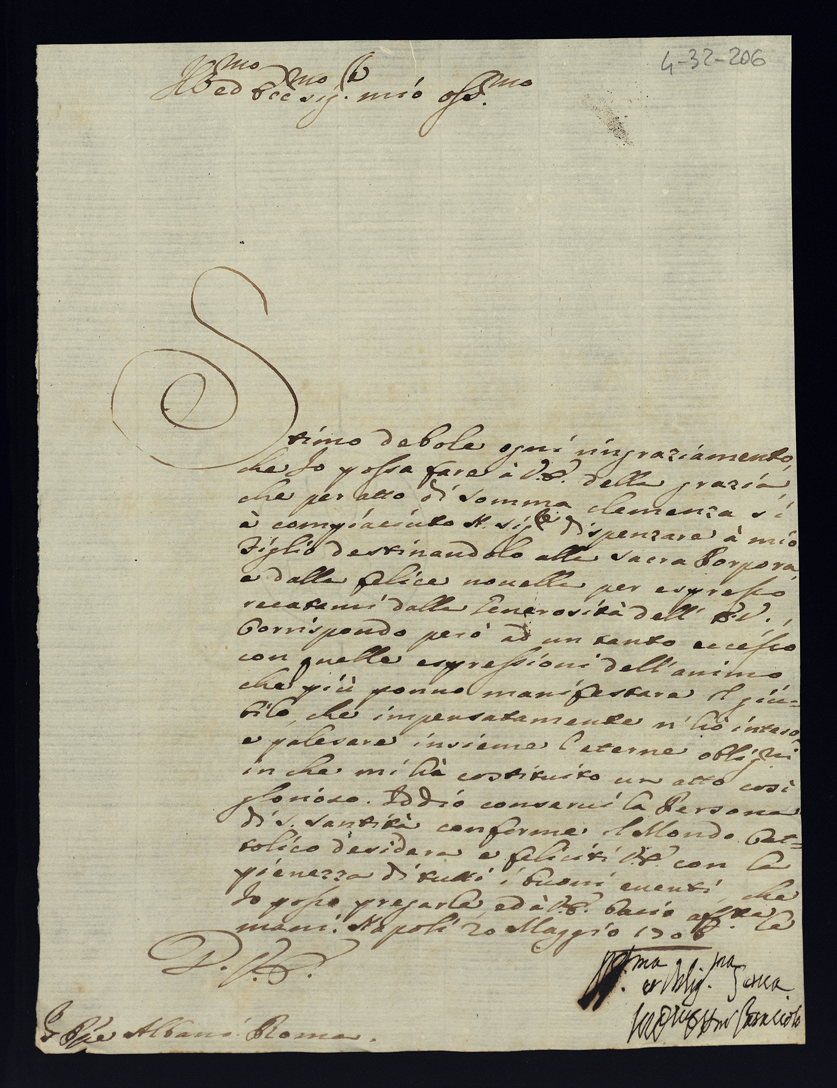 4-32-206
Ill.mo ed Ecc.mo Sig.r mio oss.mo
Stimo debole ogni ringraziamento,
che Io possa fare à V.E. della grazia,
che per atto di somma clemenza s'è
à compiaciuto N. Sig.re dispenzare à mio
Figlio destinandolo alla Sacra Porpora,
e dalla felice novella per espresso
recatami dalla Generosità dell' E.V.,
Corrispondo però ad un tanto eccesso
con quelle espressioni dell'animo
che più ponno manifestare il giu=
bilo, che impensatamente n'hò inteso,
e palesare insieme l'eterne oblig.ni
in che mi hà costituito un atto così
glorioso. Iddio conservi la Persona
di S. Santità conforme il Mondo Cat=
tolico desidera e feliciti V.E. con la
pienezza di tutti i buoni eventi, che
Io posso pregarle, ed à V.E. bacio aff.te le
mani. Napoli 20 Maggio 1706
D. V.E.
ma et Oblig.ma Serva
Caracciolo
Albani Roma.